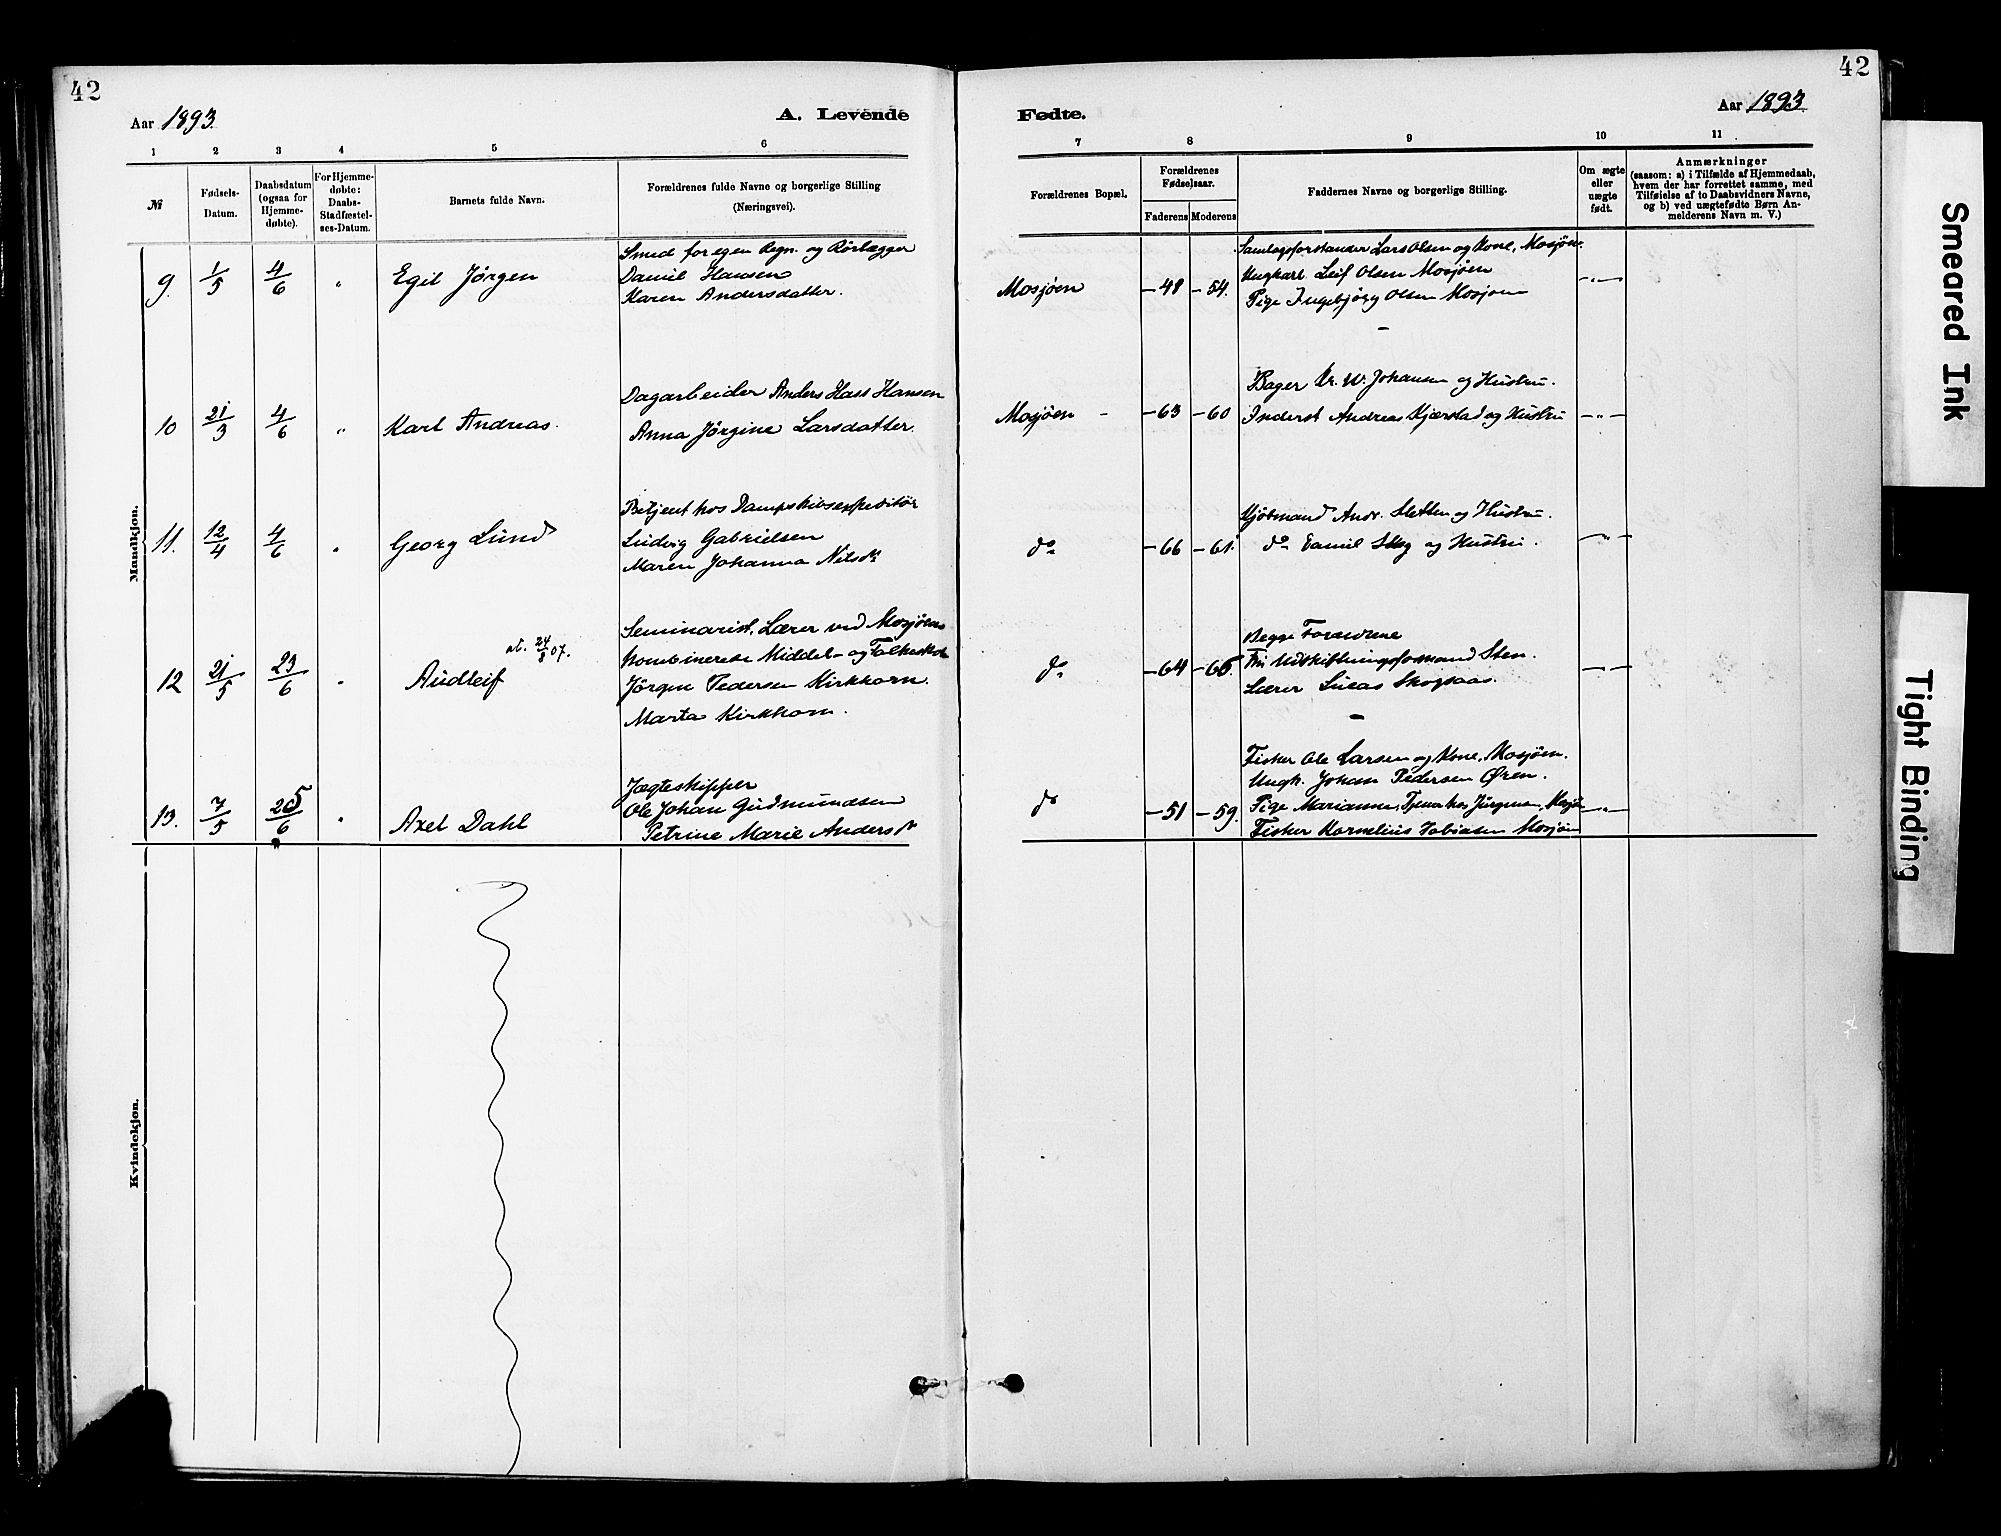 42
Aar 1893.
A. Levende
1 2 3 4 5 6
№
Fødsels-
Datum.
Daabsdatum
(ogsaa for
Hjemme-
døbte).
For Hjemme-
døbte:
Daabs-
Stadfæstel-
ses-Datum.
Barnets fulde Navn.
Forældrenes fulde Navne og borgerlige Stilling
(Næringsvei).
Mandkjøn.
9. 1/5 4/6 " Egil Jörgen
Smed for egen Regn. og Rörlægger
Daniel Hansen
Karen Andersdatter.
10 21/3 4/6 " Karl Andreas.
Dagarbeider Anders Hass Hansen
Anna Jörgine Larsdatter.
11. 12/4 4/6 " Georg Lund
Betjent hos Dampskibsexpeditör
Ludvig Gabrielsen
Maren Johanna Nilsdr
12 21/5 23/6 " Audleif
at. 24/8 07.
Seminarist, Lærer ved Mosjöens
kombinerede Middel- og Folkeskole
Jörgen Pedersen Kirkhorn.
Marta Kirkhorn.
13. 7/5 25/6 " Axel Dahl
Jægteskipper
Ole Johan Gudmundsen
Petrine Marie Andersdr
Kvindekjøn.
42
Aar 1893.
Fødte.
7 8 9 10 11
Forældrenes Bopæl.
Forældrenes
Fødselsaar.
Faderens Moderens
Faddernes Navne og borgerlige Stilling.
Om ægte
eller
uægte
født.
Anmærkninger
(saasom: a) i Tilfælde af Hjemmedaab,
hvem der har forrettet samme, med
Tilføielse af to Daabsvidners Navne,
og b) ved uægtefødte Børn An-
melderens Navn m. V.)
Mosjöen -48 -54.
Samlagsforstander Lars Olsen og Kone, Mosjöen.
Ungkarl Leif Olsen Mosjöen
Pige Ingebjörg Olsen Mosjöen
-"-
Mosjöen - -63 -60
Bager Kr. W. Johansen og Hustru.
Inderst Andreas Kjærstad og Hustru
-"-
do -66 -61.
Kjöbmand Andr. Sletten og Hustru.
do og Hustru.
-"-
do -64 -65.
Begge Forældrene
Udskiftningsformand Sten.
Lærer Lucas Skogsaas.
-"-
do -51 -59.
Fisker Ole Larsen og Kone, Mosjöen.
Ungk. Johan Pedersen Øren.
Pige Marianne, Tjener hos Jürgensen, Mosjöen
Fisker Kornelius Tobiasen Mosjöen
-"-
Smeared Ink
Tight Binding